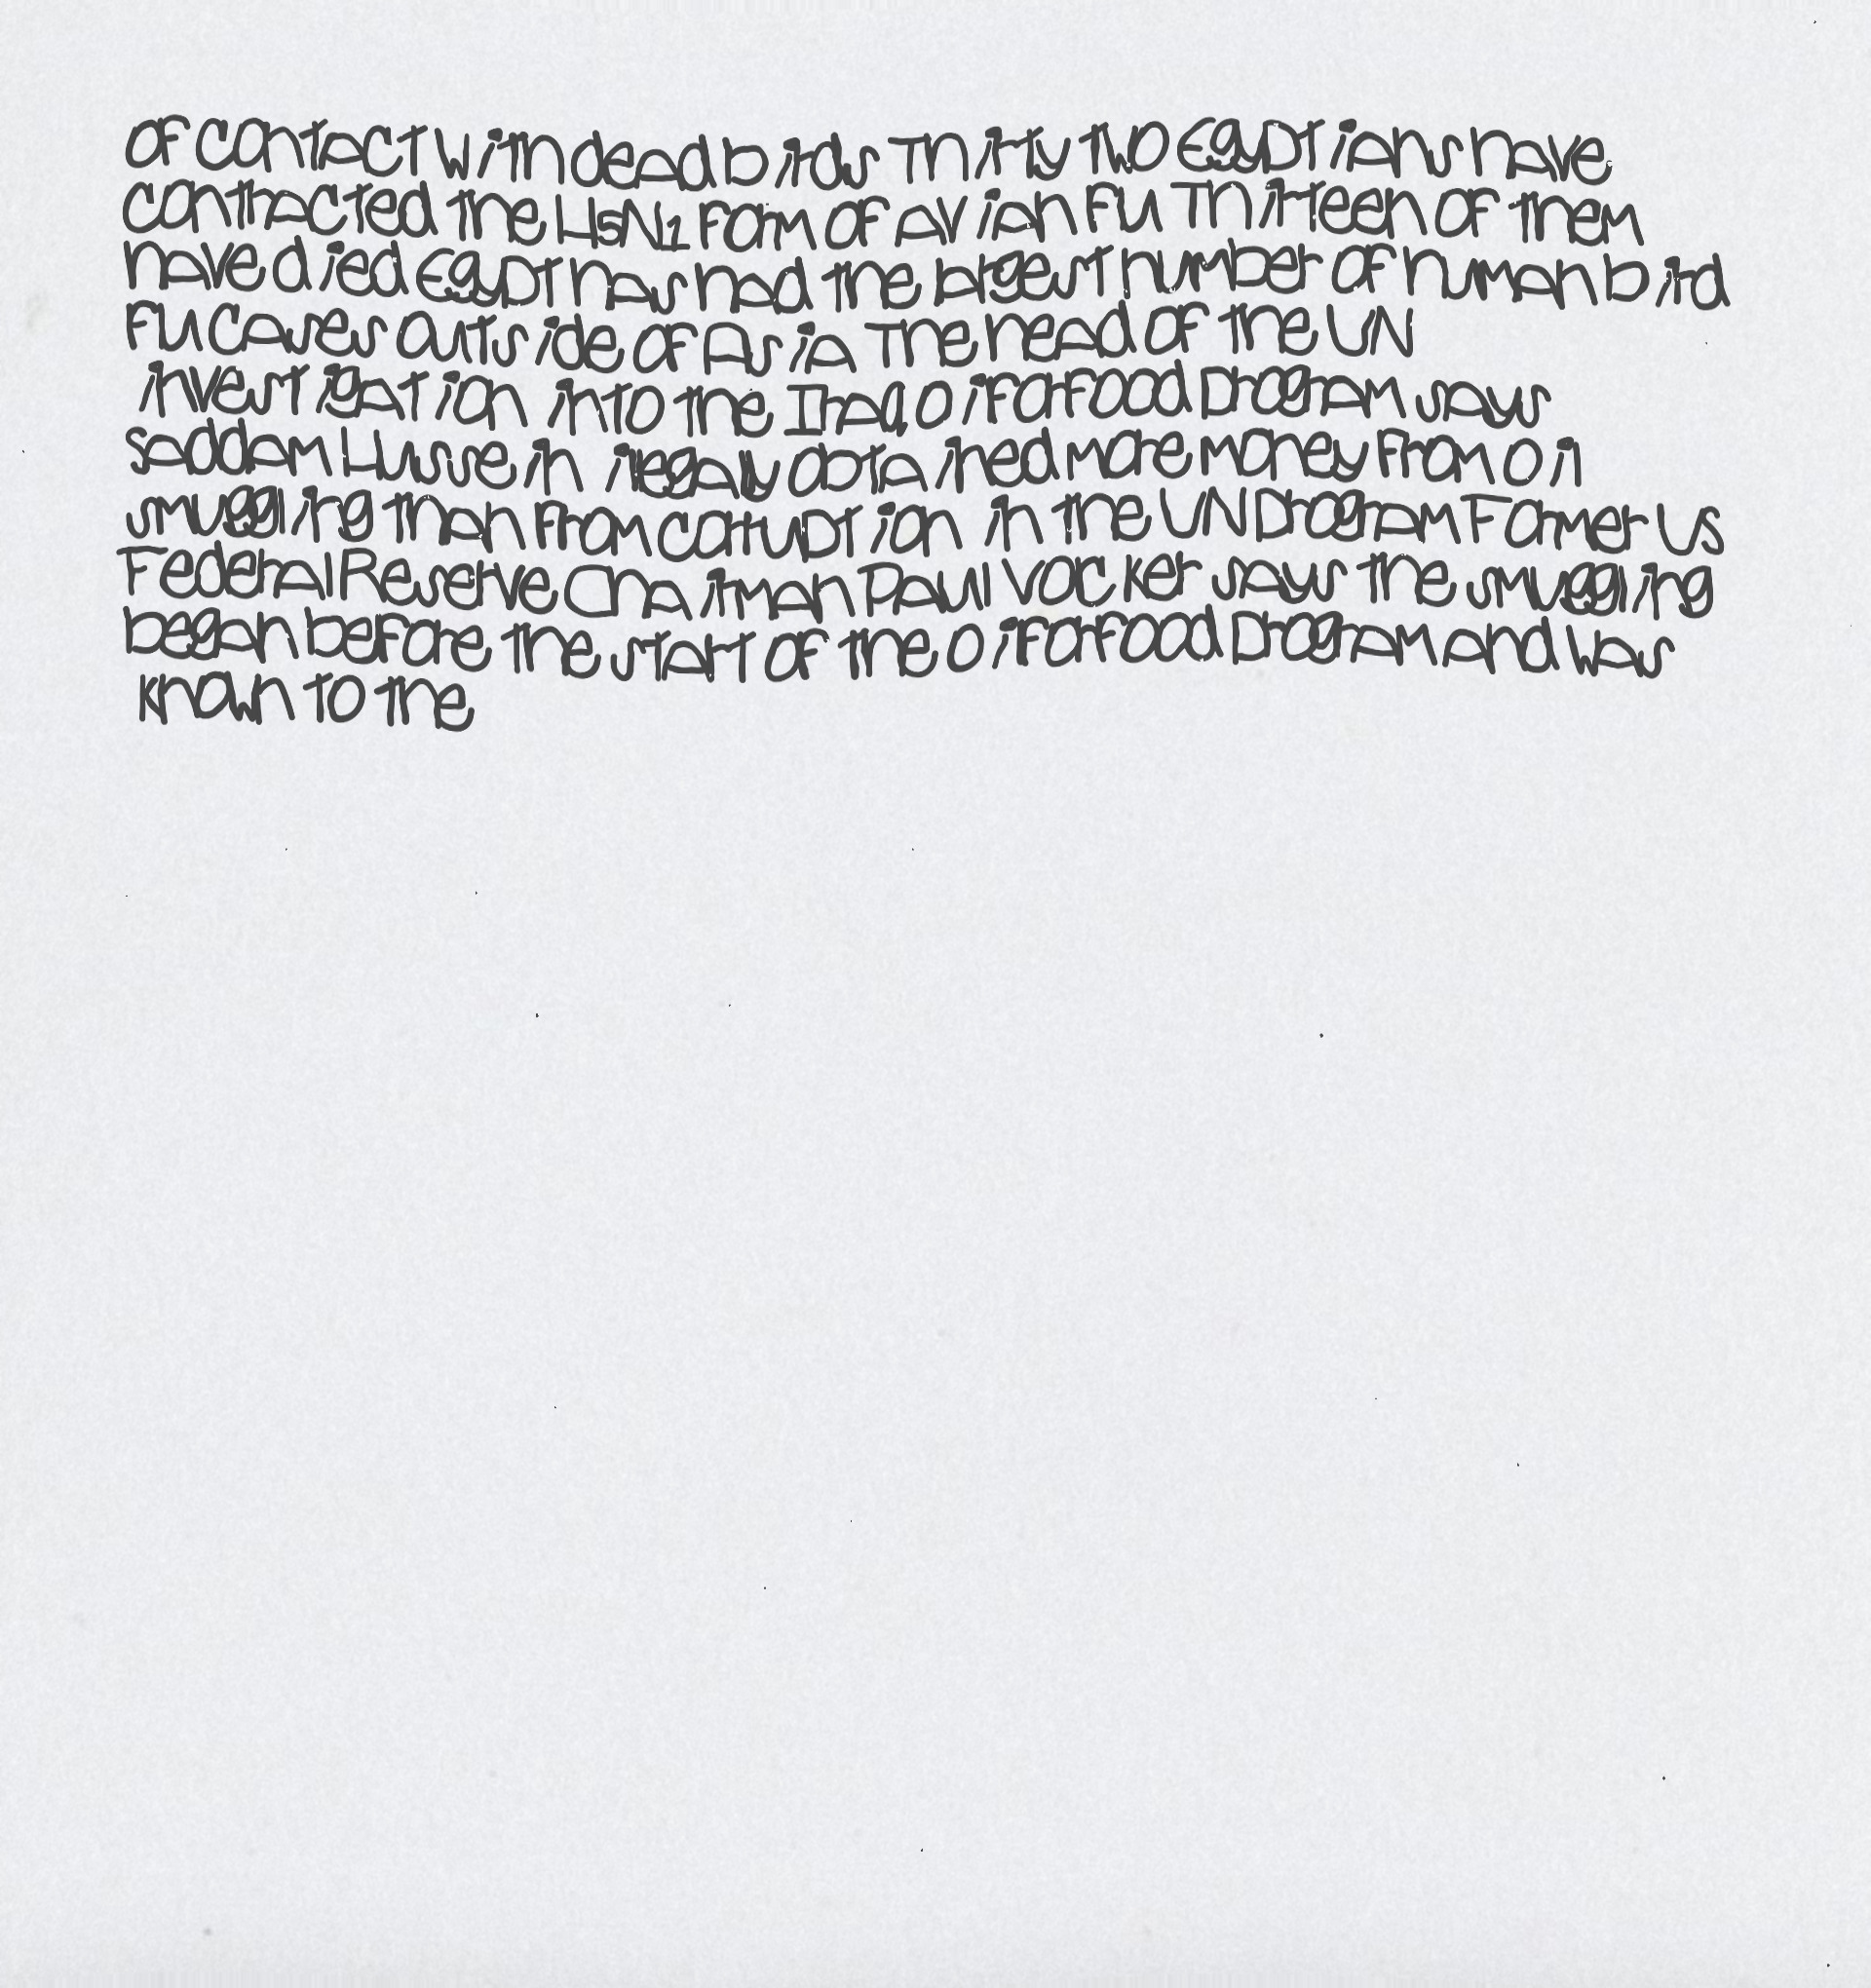 of contact with dead birds Thirty two Egyptians have
contracted the H5N1 form of avian flu Thirteen of them
have died Egypt has had the largest number of human bird
flu cases outside of Asia The head of the UN
investigation into the Iraq oilforfood program says
Saddam Hussein illegally obtained more money from oil
smuggling than from corruption in the UN program Former US
Federal Reserve Chairman Paul Volcker says the smuggling
began before the start of the oilforfood program and was
known to the